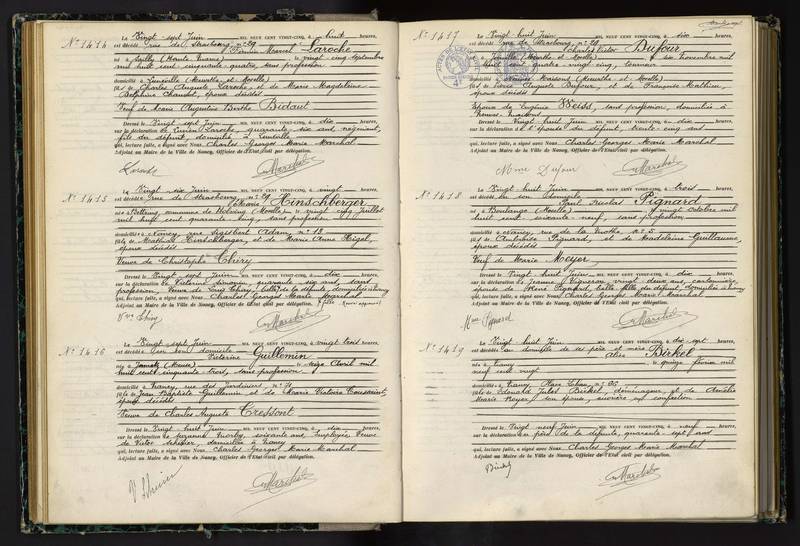 N° 1414
Le Vingt sept Juin MIL NEUF CENT VINGT-CINQ, à huit heures,
est décédé rue de Strasbourg, n° 29 Marcel Laroche
né à Sailly (Haute Marne) le vingt cinq Septembre
mil huit cent cinquante quatre, sans profession
domicilié à Lunéville (Meurthe et Moselle)
fils de Charles Auguste Laroche, et de Marie Magdeleine
Delphine Chaudot, époux décédés
Veuf de Marie Augustine Berthe Bidaut
Dressé le Vingt sept Juin MIL NEUF CENT VINGT-CINQ, à dix heures,
sur la déclaration de Lucien Laroche, quarante six ans, négociant,
fils du défunt, domicilié à Lunéville
qui, lecture faite, a signé avec Nous Charles Georges Marie Maréchal
Adjoint au Maire de la Ville de Nancy, Officier de l'Etat civil par délégation.
N° 1415
Le Vingt six Juin MIL NEUF CENT VINGT-CINQ, à vingt heures,
est décédée rue de Strasbourg, n° 29 Marie Hinschberger
commune de (Moselle) le vingt cinq Juillet
mil huit cent quarante cinq, sans profession
domiciliée à Nancy, rue Sigisbert Adam, n° 18
fille de Mathias Hinschberger, et de Marie Anne
époux décédés
Veuve de Christophe Thiry
Dressé le Vingt sept Juin MIL NEUF CENT VINGT-CINQ, à dix heures,
sur la déclaration de Victorine Simonin, quarante six ans, sans
profession, Veuve de Thiry, de la défunte, domiciliée à Nancy
qui, lecture faite, a signé avec Nous Charles Georges Marie Maréchal
Adjoint au Maire de la Ville de Nancy, Officier de l'Etat civil par délégation.
Vve Thiry
N° 1416
Le Vingt sept Juin MIL NEUF CENT VINGT-CINQ, à vingt trois heures,
est décédée en son domicile Victorine Guillemin
née à Jametz (Meuse) le seize Avril mil
huit cent cinquante trois, sans profession
domiciliée à Nancy, rue des Jardiniers n°
fille de Jean Baptiste Guillemin et de Marie Victoire Toussaint,
époux décédés
Veuve de Charles Auguste Tressont
Dressé le Vingt huit Juin MIL NEUF CENT VINGT-CINQ, à dix heures,
sur la déclaration de Suzanne soixante ans, employée, Veuve
de Victor domiciliée à Nancy
qui, lecture faite, a signé avec Nous Charles Georges Marie Maréchal
Adjoint au Maire de la Ville de Nancy, Officier de l'Etat civil par délégation.
N° 1417
Le Vingt huit Juin MIL NEUF CENT VINGT-CINQ, à dix heures,
est décédé rue de Strasbourg, n° 29 Charles Victor Dufour
né à (Meurthe et Moselle) le six Novembre mil
huit cent quatre vingt cinq,
domicilié à Maisons (Meurthe et Moselle)
fils de Pierre Auguste Dufour, et de Françoise Mathieu,
époux décédés
Epoux de Eugénie Weiss, sans profession, domiciliée à
Maisons
Dressé le Vingt huit Juin MIL NEUF CENT VINGT-CINQ, à dix heures,
sur la déclaration de l'épouse du défunt, trente cinq ans
qui, lecture faite, a signé avec Nous Charles Georges Marie Maréchal
Adjoint au Maire de la Ville de Nancy, Officier de l'Etat civil par délégation.
Mme Dufour
N° 1418
Le Vingt huit Juin MIL NEUF CENT VINGT-CINQ, à trois heures,
est décédé en son domicile Paul Nicolas Pignard
né à Boulange (Moselle) le vingt octobre mil
huit cent soixante neuf, sans profession
domicilié à Nancy, rue de la n° 5
fils de Pignard, et de Madeleine Guillaume,
époux décédés
Veuf de Marie Meyer
Dressé le Vingt huit Juin MIL NEUF CENT VINGT-CINQ, à dix heures,
sur la déclaration de Jeanne Vigneron, vingt deux ans, cartonnière,
épouse de René Pignard, belle fille du défunt, domiciliée à Nancy
qui, lecture faite, a signé avec Nous Charles Georges Marie Maréchal
Adjoint au Maire de la Ville de Nancy, Officier de l'Etat civil par délégation.
Mme Pignard
N° 1419
Le Vingt huit Juin MIL NEUF CENT VINGT-CINQ, à dix sept heures,
est décédée au domicile de ses père et mère Alice Birkel
née à Nancy le quinze février mil
neuf cent vingt
domiciliée à Nancy, Place n°
fille de Edouard Jules Birkel, déménageur, et de Amélie
Marie Royer, son épouse, ouvrière en confection
Dressé le Vingt neuf Juin MIL NEUF CENT VINGT-CINQ, à neuf heures,
sur la déclaration du père de la défunte, quarante sept ans
qui, lecture faite, a signé avec Nous Charles Georges Marie Maréchal
Adjoint au Maire de la Ville de Nancy, Officier de l'Etat civil par délégation.
Birkel